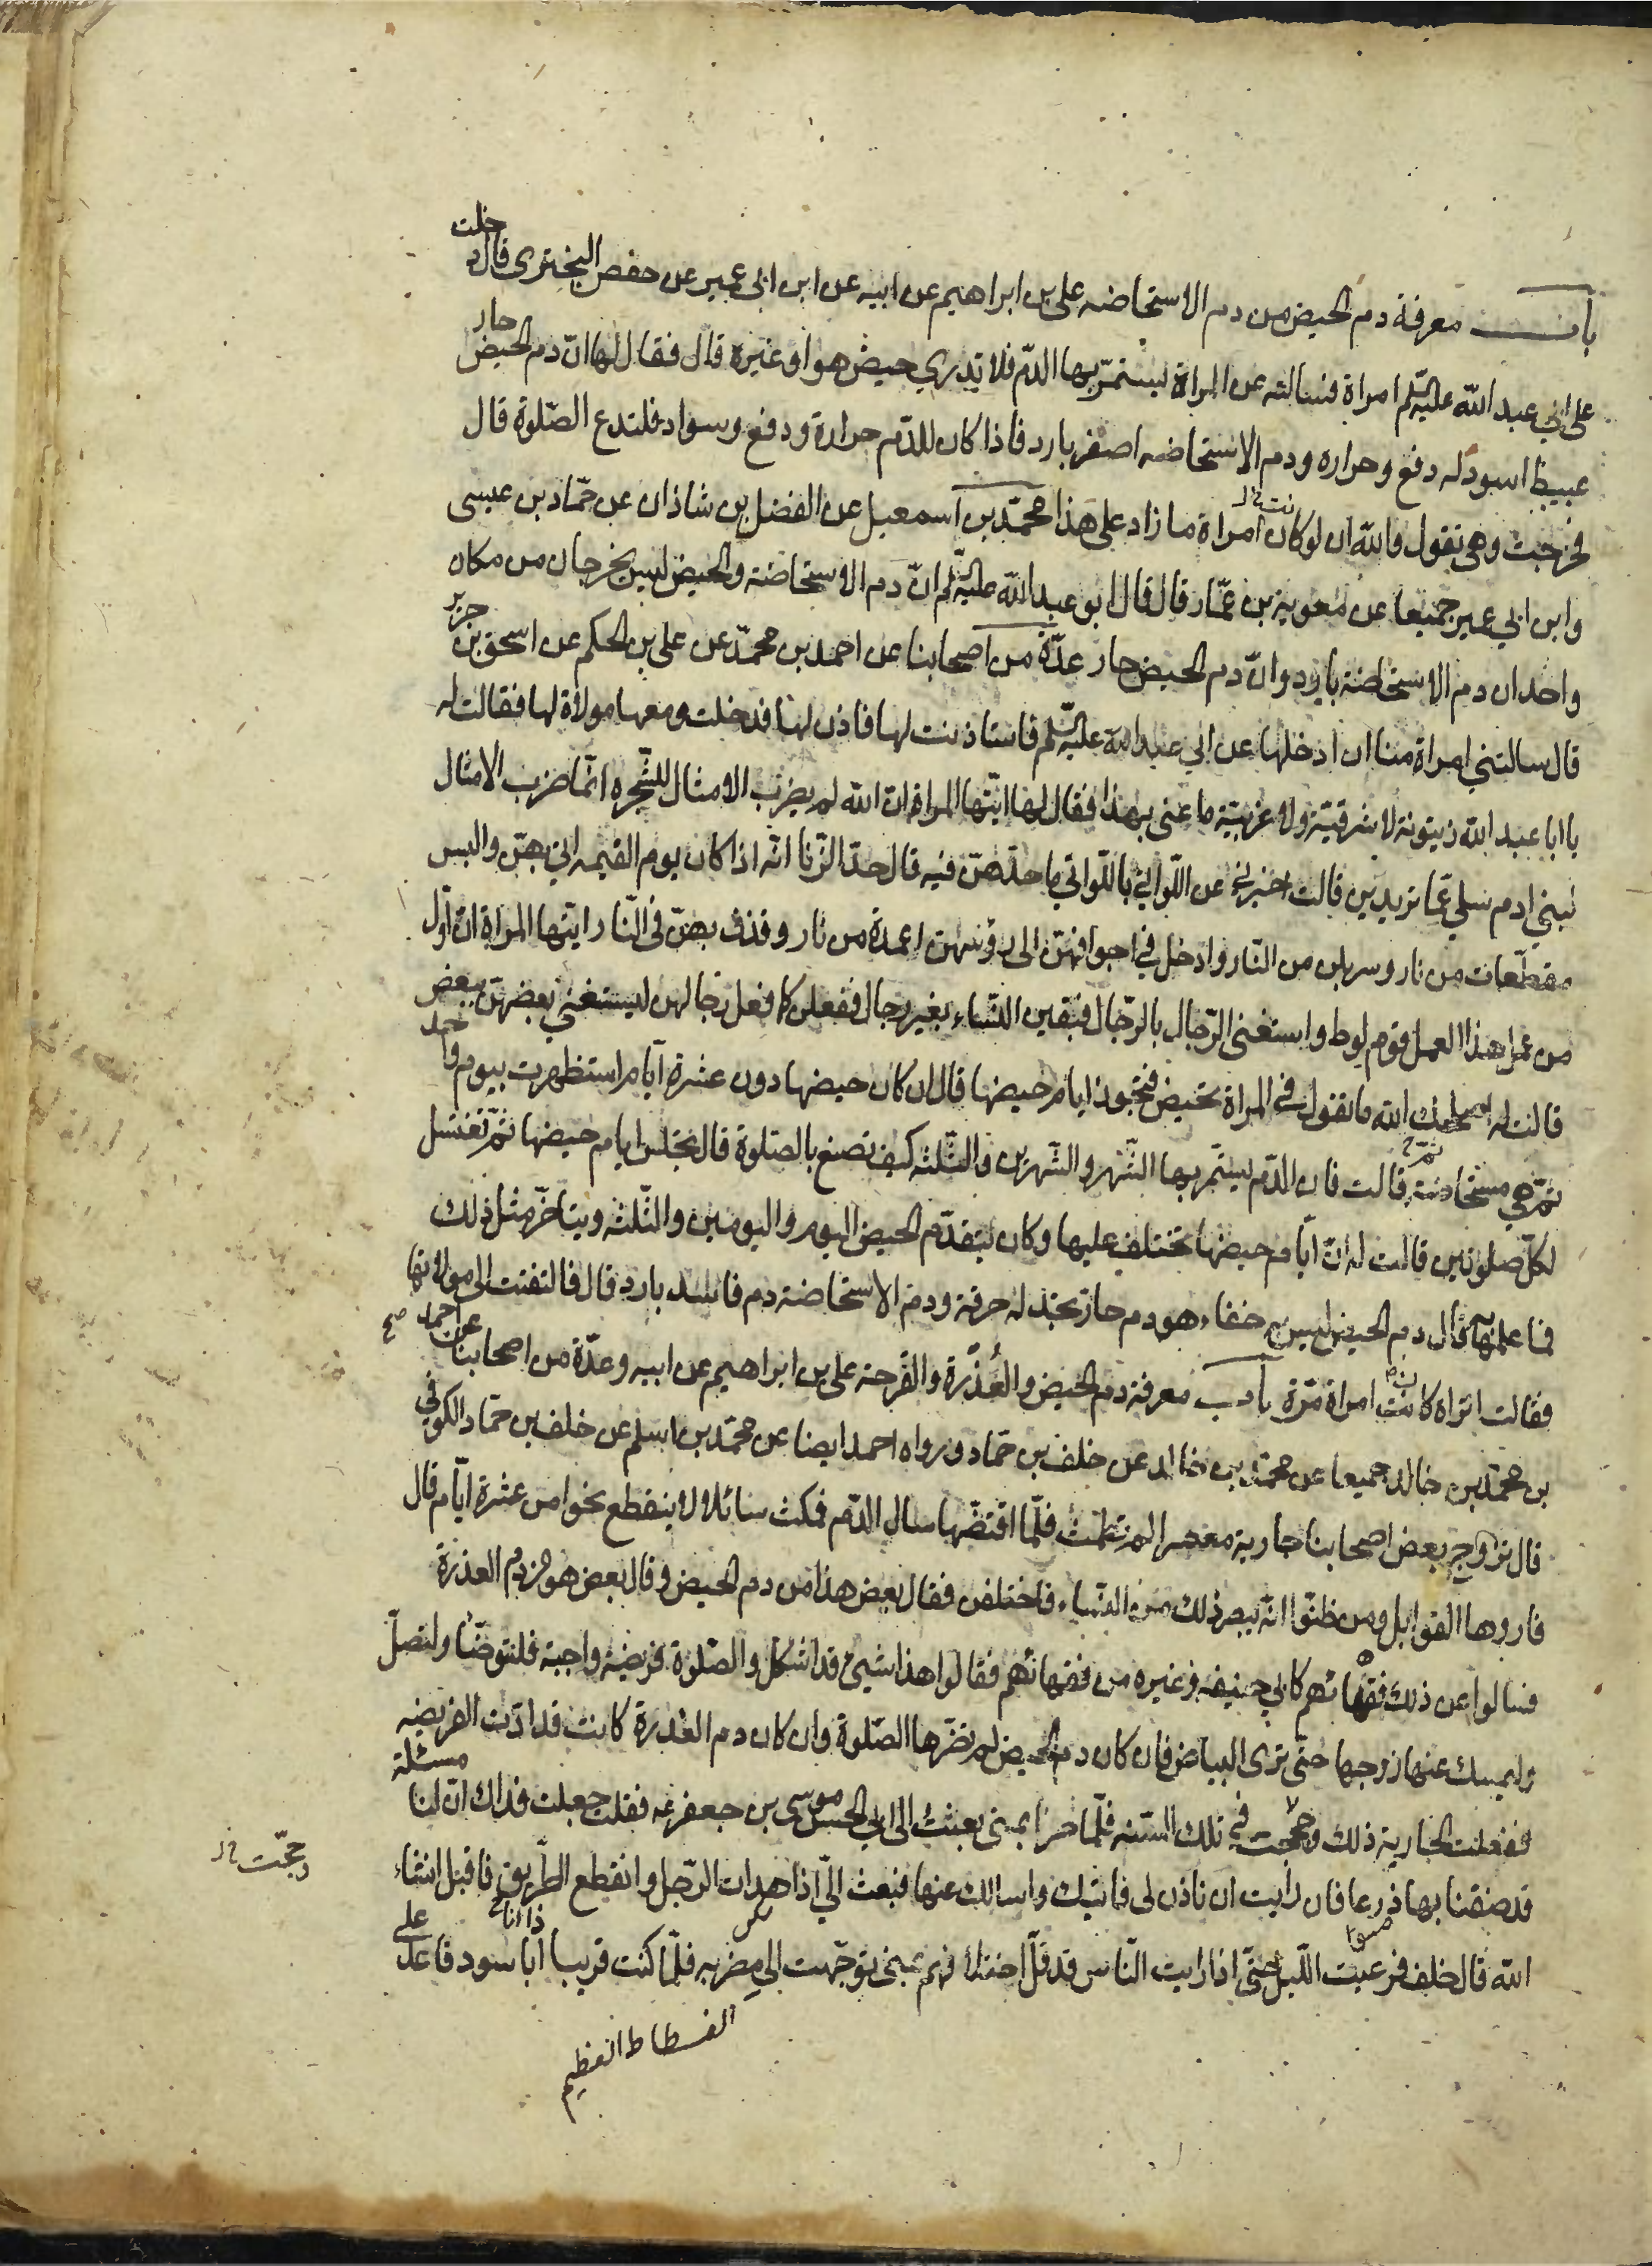 باب معرفة دم الحيض من دم الاستحاضه علي بن ابراهيم عن ابيه عن ابن ابي عمير عن حفص البختري قال دخلت
على ابي عبد الله عليه السلم امراة فسالته عن المراة يستمرّ بها الدّم فلا تدري حيض هو او غيره قال فقال لها انّ دم الحيض حار
عبيط اسود له دفع وحراره ودم الاستحاضه اصفر بارد فاذا كان للدّم حرارة ودفع وسواد فلتدع الصّلوة قال
فخرجت وهي تقول والله ان لو كان امراة ما زاد على هذا محمّد بن اسمعيل عن الفضل بن شاذان عن حمّاد بن عيسى
وابن ابي عمير جميعا عن معوية بن عمّار قال قال ابو عبد الله عليه السلم انّ دم الاستحاضة والحيض ليس يخرجان من مكان
واحد ان دم الاستحاضة بارد وانّ دم الحيض حار عدّة من اصحابنا عن احمد بن محمّد عن علي بن الحكم عن اسحق بن جرير
قال سالتني امراة منا ان ادخلها عن ابي عبد الله عليه السلم فاستاذنت لها فاذن لها فدخلت ومعها مولاة لها فقالت له
يا ابا عبد الله زيتونة لا شرقيّة ولا غربيّة ما عنى بهذا فقال لها ايّتها المراة ان الله لم يضرب الامثال للشّجره انّما ضرب الامثال
لبني ادم سلي عمّا تريدين قالت اخبرني عن اللّواتي باللّواتي ما حدّهنّ فيه قال حدّ الزّنا انّه اذا كان يوم القيمه اتي بهنّ والبس
مقطّعات من نار وسربلن من النّار وادخل في اجوافهنّ الى رؤسهن اعمدة من نار وقذف بهنّ في النّار ايّتها المراة ان اوّل
من عمل هذا العمل قوم لوط واستغنى الرّجال بالرّجال فبقين النّساء بغير رجال ففعلن كما فعل رجالهن ليستغني بعضهنّ ببعض
قالت له اصلحك الله ما تقول في المراة تحيض فتجوز ايام حيضها قال ان كان حيضها دون عشرة ايّام استظهرت بيوم واحد
ثمّ هي مستحاضة قالت فان الدّم يستمر بها الشّهر والشّهرين والثّلثه كيف تصنع بالصّلوة قال تجلس ايام حيضها ثمّ تغتسل
لكلّ صلوتين قالت له انّ ايّام حيضها تختلف عليها وكان يتقدّم الحيض اليوم واليومين والثّلثه ويتاخّر مثل ذلك
فما علمها به قال دم الحيض ليس به خفاء هو دم حار تجد له حرقة ودم الاستحاضة دم فاسد بارد قال فالتفتت الى مولاتها
فقالت اتراه كانت امراة مرّة باب معرفة دم الحيض والعُذْرة والقرحة علي بن ابراهيم عن ابيه وعدّة من اصحابنا عن احمد صح
بن محمّد بن خالد جميعا عن محمّد بن خالد عن خلف بن حمّاد ورواه احمد ايضا عن محمّد بن اسلم عن خلف بن حمّاد الكوفي
قال تزوّج بعض اصحابنا جارية معصرا لم تطمث فلمّا اقتضّها سال الدّم فمكث سائلا لا ينقطع نحوا من عشرة ايّام قال
فاروها القوابل ومن ظنّوا انّه يبصر ذلك من النّساء فاختلفن فقال بعض هذا من دم الحيض وقال بعض هو من دم العذرة
فسالوا عن ذلك فقهائهم كابي حنيفه وغيره من فقهائهم فقالوا هذا شيئ قد اشكل والصّلوة فريضة واجبة فلتتوضّا ولتصلّ
وليمسك عنها زوجها حتّى ترى البياض فان كان دم الحيض لم تضرّها الصّلوة وان كان دم العذرة كانت قد ادّت الفريضه
ففعلت الجارية ذلك وحججت في تلك السّنه فلمّا صرنا بمنى بعثت الى ابي الحسن موسى بن جعفر عه فقلت جعلت فداك انّ لنا مسئلة
وحجّت خ ل
قد ضقنا بها ذرعا فان رايت ان تاذن لي فاتيك واسالك عنها فبعث الىّ اذا هدات الرّجل وانقطع الطّريق فاقبل انشاء
الله قال خلف فرعيت اللّيل حتّى اذا رايت النّاس قد قلّ اختلافهم بمنى توجّهت الى مضربه فلمّا كنت قريبا اذا انا باسود قاعد على
الفسطاط العظيم